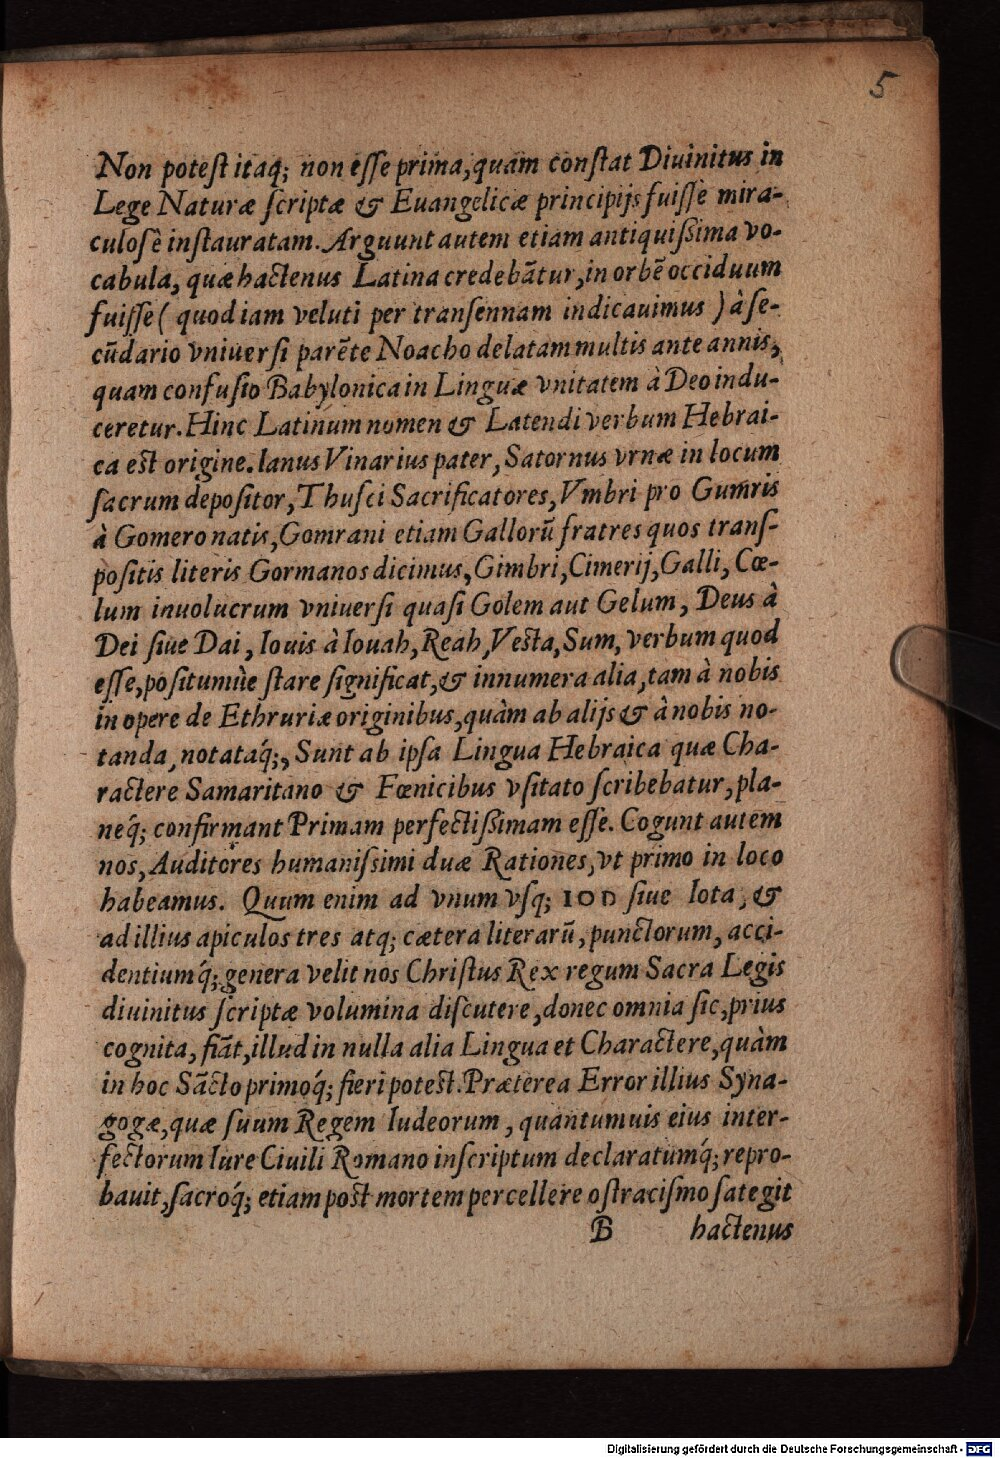 5
Non poteſt itaq; non eſſe prima, quam conſtat Diuinitus in
Lege Naturæ ſcriptæ & Euangelicæ principijs fuiſſe mira-
culoſè inſtauratam. Arguunt autem etiam antiquiſsima vo-
cabula, quæ hactenus Latina credebātur, in orbē occiduum
fuiſſe ( quod iam veluti per tranſennam indicauimus ) à ſe-
cūdario vniuerſi parēte Noacho delatam multis ante annis,
quam confuſio Babylonica in Linguæ vnitatem à Deo indu-
ceretur. Hinc Latinum nomen & Latendi verbum Hebrai-
ca eſt origine. Ianus Vinarius pater, Satornus vrnæ in locum
ſacrum depoſitor, Thuſci Sacrificatores, Vmbri pro Gumris
à Gomero natis, Gomrani etiam Gallorū fratres quos tranſ-
poſitis literis Gormanos dicimus, Gimbri, Cimerij, Galli, Cœ-
lum inuolucrum vniuerſi quaſi Golem aut Gelum, Deus à
Dei ſiue Dai, Iouis à Iouah, Reah, Veſta, Sum, verbum quod
eſſe, poſitumùe ſtare ſignificat, & innumera alia, tam à nobis
in opere de Ethruriæ originibus, quàm ab alijs & à nobis no-
tanda, notataq́;, Sunt ab ipſa Lingua Hebraica quæ Cha-
ractere Samaritano & Fœnicibus vſitato ſcribebatur, pla-
neq́; confirmant Primam perfectiſsimam eſſe. Cogunt autem
nos, Auditores humaniſsimi duæ Rationes, vt primo in loco
habeamus. Quum enim ad vnum vſq; IOD ſiue Iota, &
ad illius apiculos tres atq; cætera literarū, punctorum, acci-
dentiumq́; genera velit nos Chriſtus Rex regum Sacra Legis
diuinitus ſcriptæ volumina diſcutere, donec omnia ſic, prius
cognita, fiāt, illud in nulla alia Lingua et Charactere, quàm
in hoc Sācto primoq́; fieri poteſt. Præterea Error illius Syna-
gogæ, quæ ſuum Regem Iudeorum, quantumuis eius inter-
fectorum Iure Ciuili Romano inſcriptum declaratumq́; repro-
bauit, ſacroq́; etiam poſt mortem percellere oſtraciſmo ſategit
B hactenus
Digitalisierung gefördert durch die Deutsche Forschungsgemeinschaft - DFG